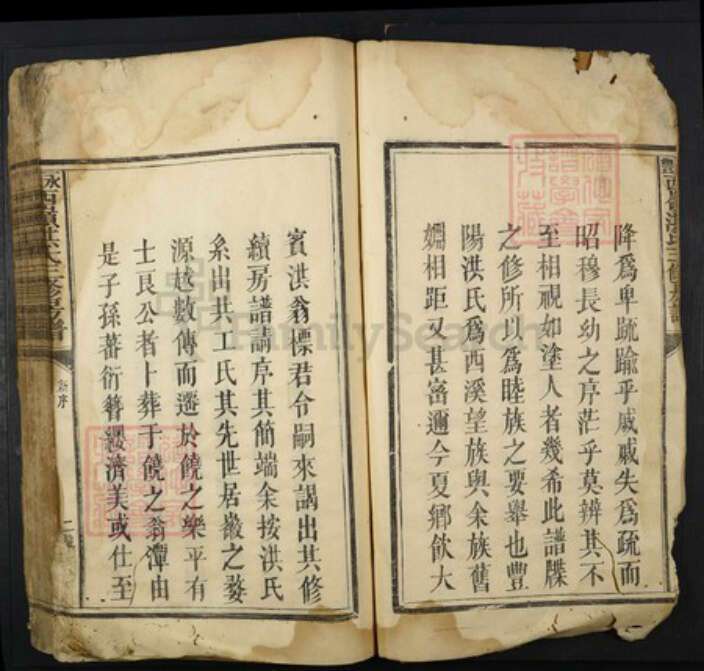 降爲卑疏踰乎戚戚失爲疏而
昭穆長幼之序茫乎莫辨其不
至相視如塗人者幾希此譜牒
之修所以爲睦族之要舉也豐
陽洪氏爲西溪望族與余族舊
嫺相距又甚密邇今夏鄉飲大
賓洪翁慓君令嗣來謁出其修
續房譜請序其簡端余按洪氏
系出共工氏其先世居徽之婺
源越數傳而遷於饒之樂平有
士良公者卜葬于饒之翁潭由
是子孫蕃衍簪纓濟美或仕至
新序
二
FamilySearch